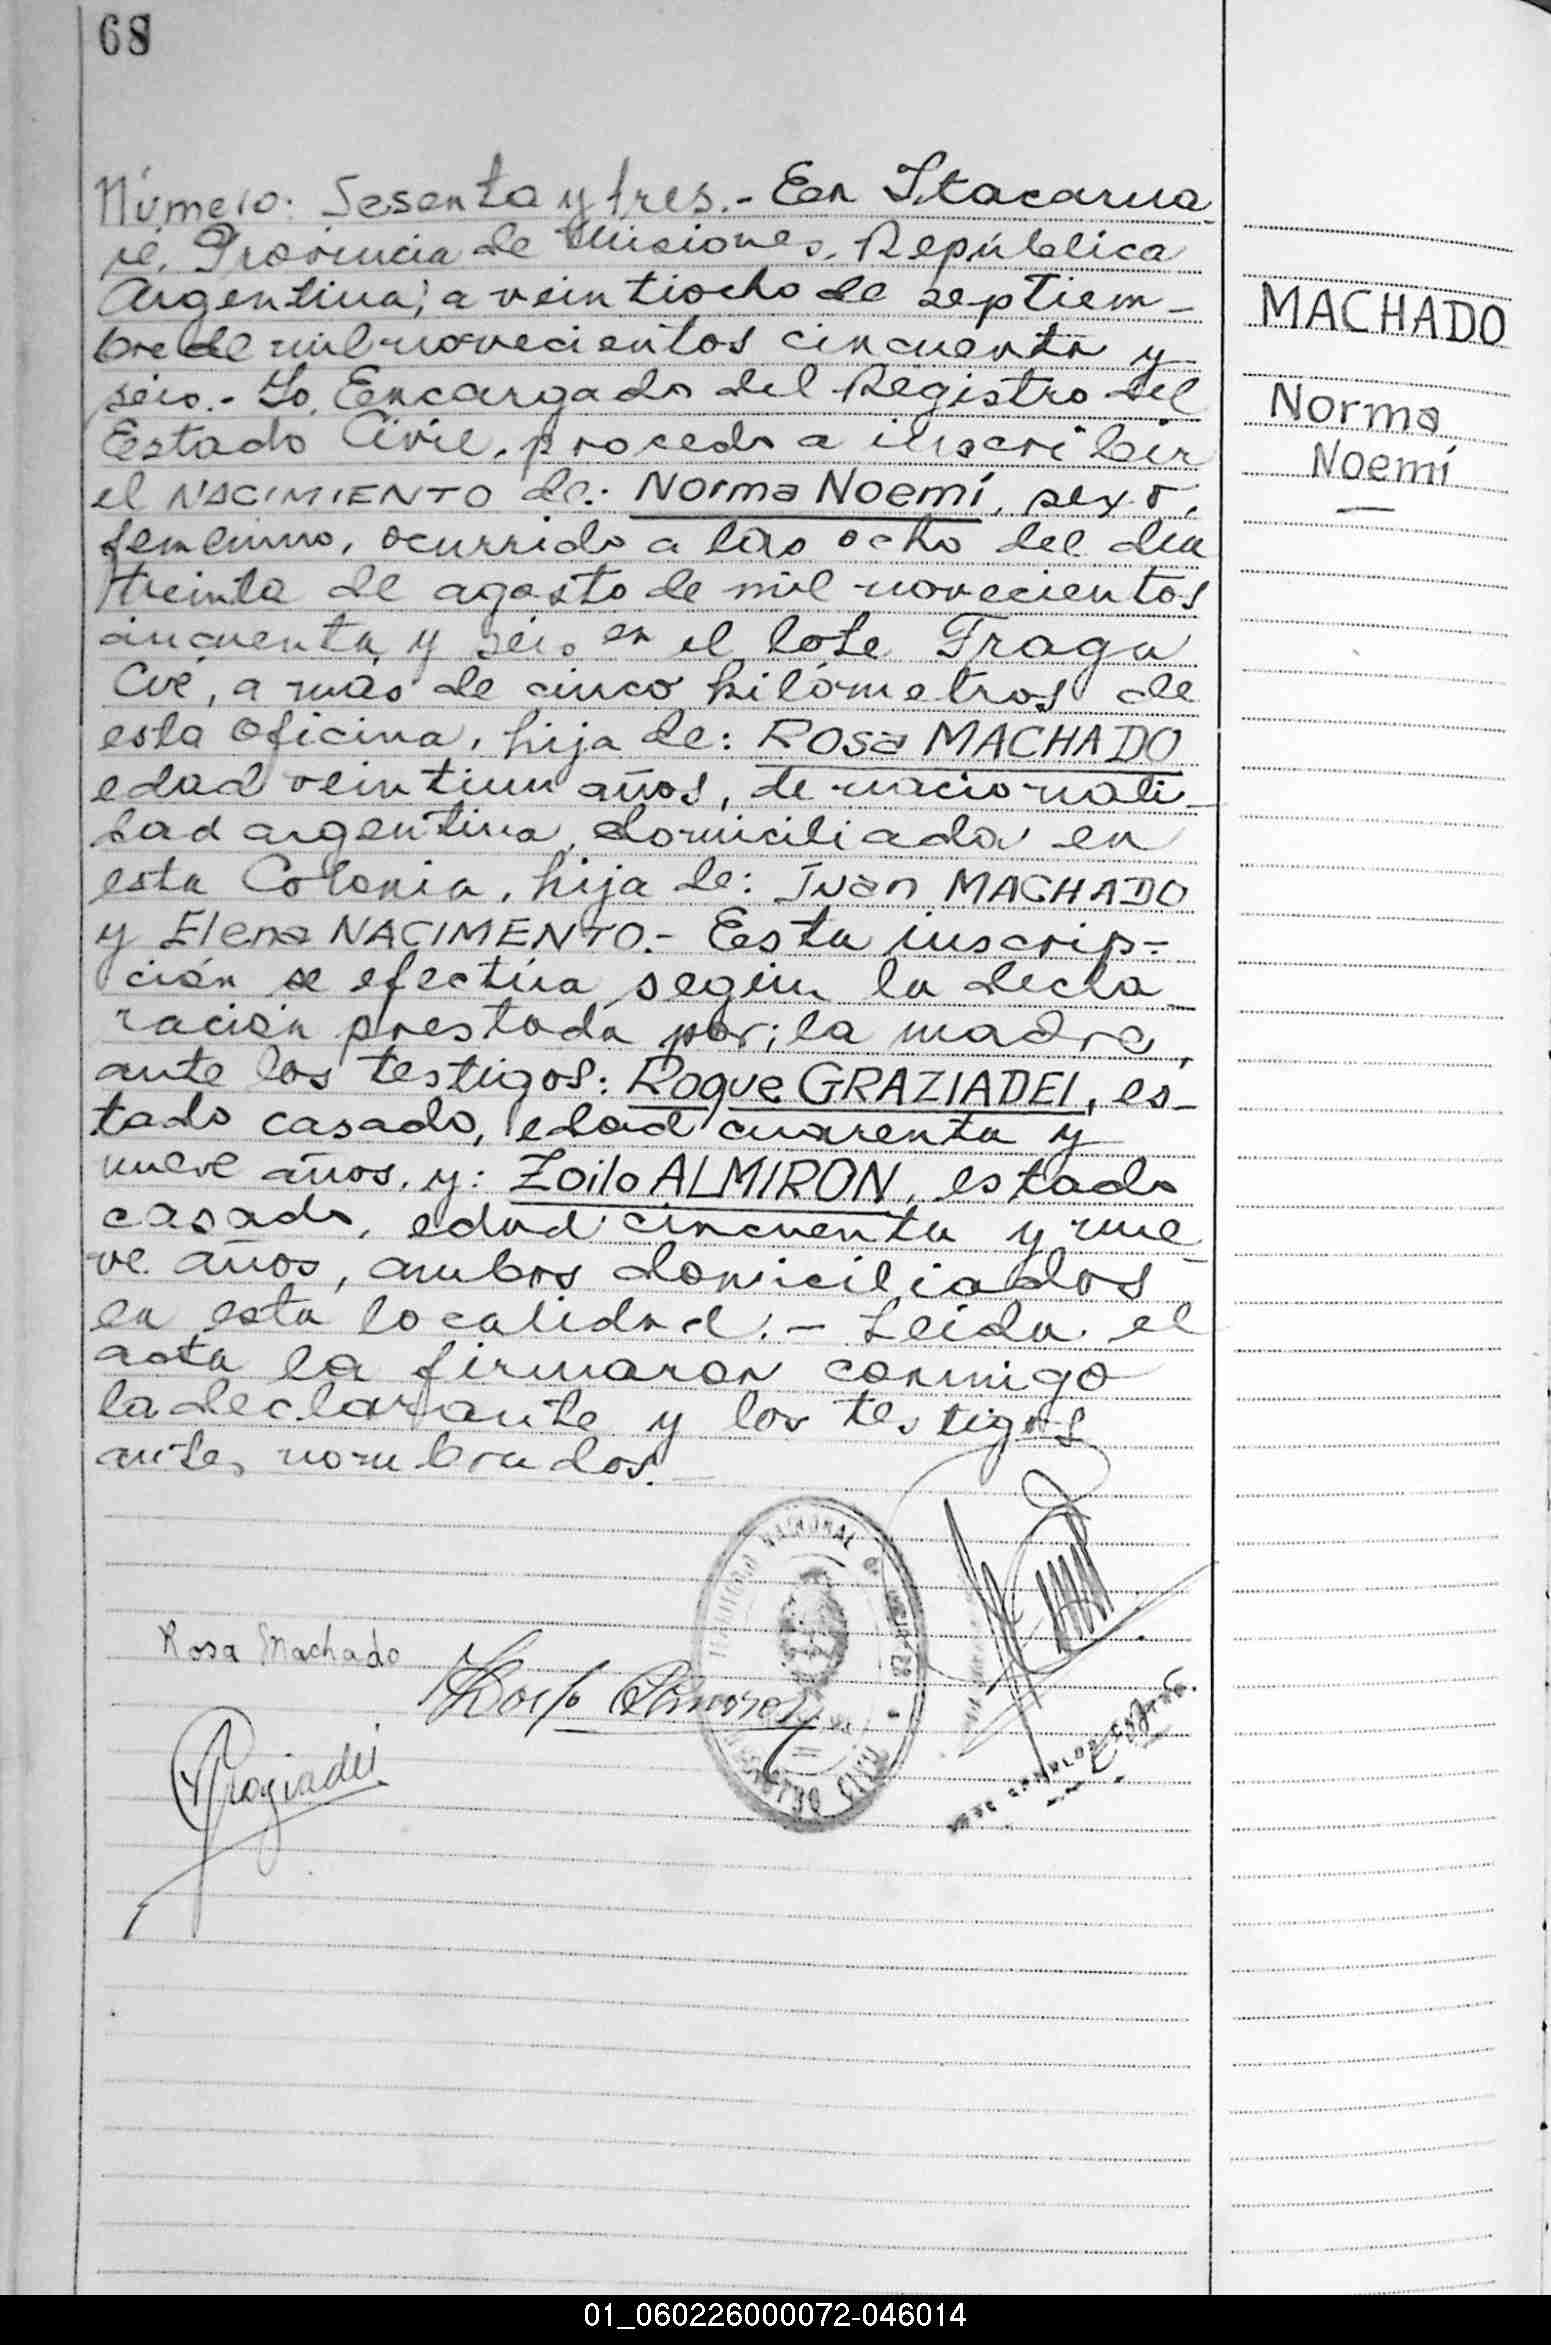 68
Número: Sesenta y tres.- En Itacarua
ré, Provincia de Misiones, República
Argentina; a veintiocho de septiem-
bre de mil novecientos cincuenta y
seis.- Yo, Encargado del Registro del
Estado Civil, procedo a inscribir
el NACIMIENTO de: Norma Noemí, sexo,
femenino, ocurrido a las ocho del día
treinta de agosto de mil novecientos
cincuenta y seis en el lote Fragu
Cué, a más de cinco kilómetros de
esta oficina, hija de: Rosa MACHADO
edad veintiun años, de nacionali-
dad argentina, domiciliada en
esta Colonia, hija de: Juan MACHADO
y Elena NACIMENTO.- Esta inscrip-
ción se efectúa según la decla
ración prestada por; la madre,
ante los testigos: Roque GRAZIADEI, es-
tado casado, edad cuarenta y
nueve años, y: Zoilo ALMIRON, estado
casado, edad cincuenta y nue-
ve años, ambos domiciliados
en esta localidad.- Leida el
acta la firmaron conmigo
la declarante y los testigos
antes nombrados.-
MACHADO
Norma
Noemí
Rosa Machado
01_060226000072-046014